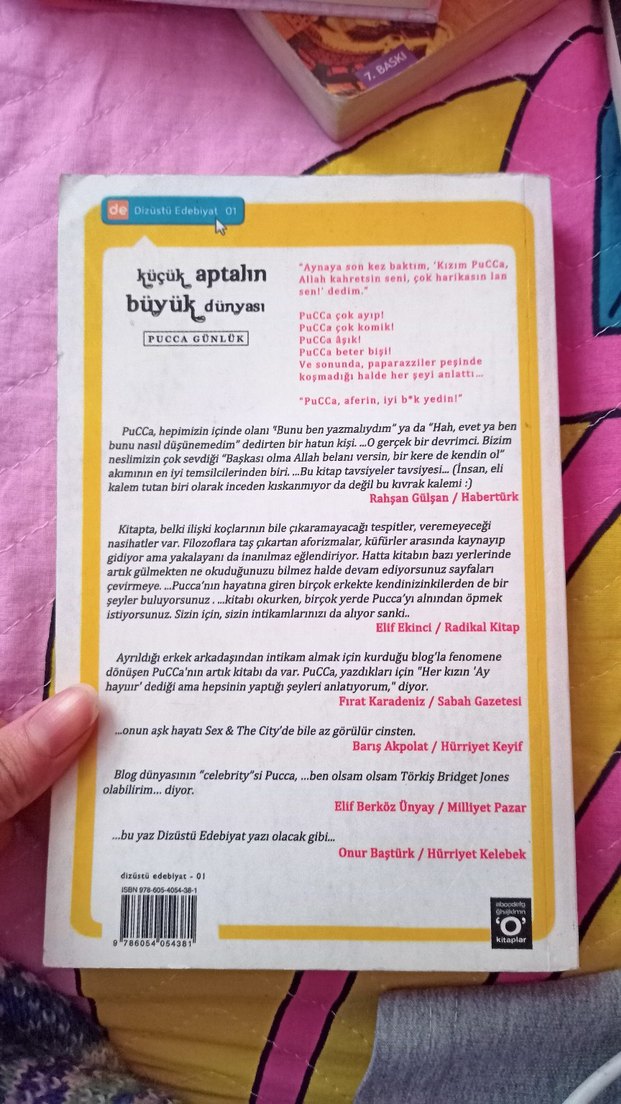 7. BASKI
de Dizüstü Edebiyat 01
küçük aptalın
büyük dünyası
PUCCA GÜNLÜK
"Aynaya son kez baktım, 'Kızım PuCCa,
Allah kahretsin seni, çok harikasın lan
sen!' dedim."
PuCCa çok ayıp!
PuCCa çok komik!
PuCCa âşık!
PuCCa beter bişi!
Ve sonunda, paparazziler peşinde
koşmadığı halde her şeyi anlattı...
"PuCCa, aferin, iyi b*k yedin!"
PuCCa, hepimizin içinde olanı "Bunu ben yazmalıydım" ya da "Hah, evet ya ben
bunu nasıl düşünemedim" dedirten bir hatun kişi. ...O gerçek bir devrimci. Bizim
neslimizin çok sevdiği "Başkası olma Allah belanı versin, bir kere de kendin ol"
akımının en iyi temsilcilerinden biri. ...Bu kitap tavsiyeler tavsiyesi... (İnsan, eli
kalem tutan biri olarak inceden kıskanmıyor da değil bu kıvrak kalemi :)
Rahşan Gülşan / Habertürk
Kitapta, belki ilişki koçlarının bile çıkaramayacağı tespitler, veremeyeceği
nasihatler var. Filozoflara taş çıkartan aforizmalar, küfürler arasında kaynayıp
gidiyor ama yakalayanı da inanılmaz eğlendiriyor. Hatta kitabın bazı yerlerinde
artık gülmekten ne okuduğunuzu bilmez halde devam ediyorsunuz sayfaları
çevirmeye. ...Pucca'nın hayatına giren birçok erkekte kendinizinkilerden de bir
şeyler buluyorsunuz . ...kitabı okurken, birçok yerde Pucca'yı alnından öpmek
istiyorsunuz. Sizin için, sizin intikamlarınızı da alıyor sanki..
Elif Ekinci / Radikal Kitap
Ayrıldığı erkek arkadaşından intikam almak için kurduğu blog'la fenomene
dönüşen PuCCa'nın artık kitabı da var. PuCCa, yazdıkları için "Her kızın 'Ay
hayıır' dediği ama hepsinin yaptığı şeyleri anlatıyorum," diyor.
Fırat Karadeniz / Sabah Gazetesi
...onun aşk hayatı Sex & The City'de bile az görülür cinsten.
Barış Akpolat / Hürriyet Keyif
Blog dünyasının "celebrity"si Pucca, ...ben olsam olsam Törkiş Bridget Jones
olabilirim... diyor.
Elif Berköz Ünyay / Milliyet Pazar
...bu yaz Dizüstü Edebiyat yazı olacak gibi...
Onur Baştürk / Hürriyet Kelebek
dizüstü edebiyat - 01
ISBN 978-605-4054-38-1
9 786054 054381
'O'
kitaplar